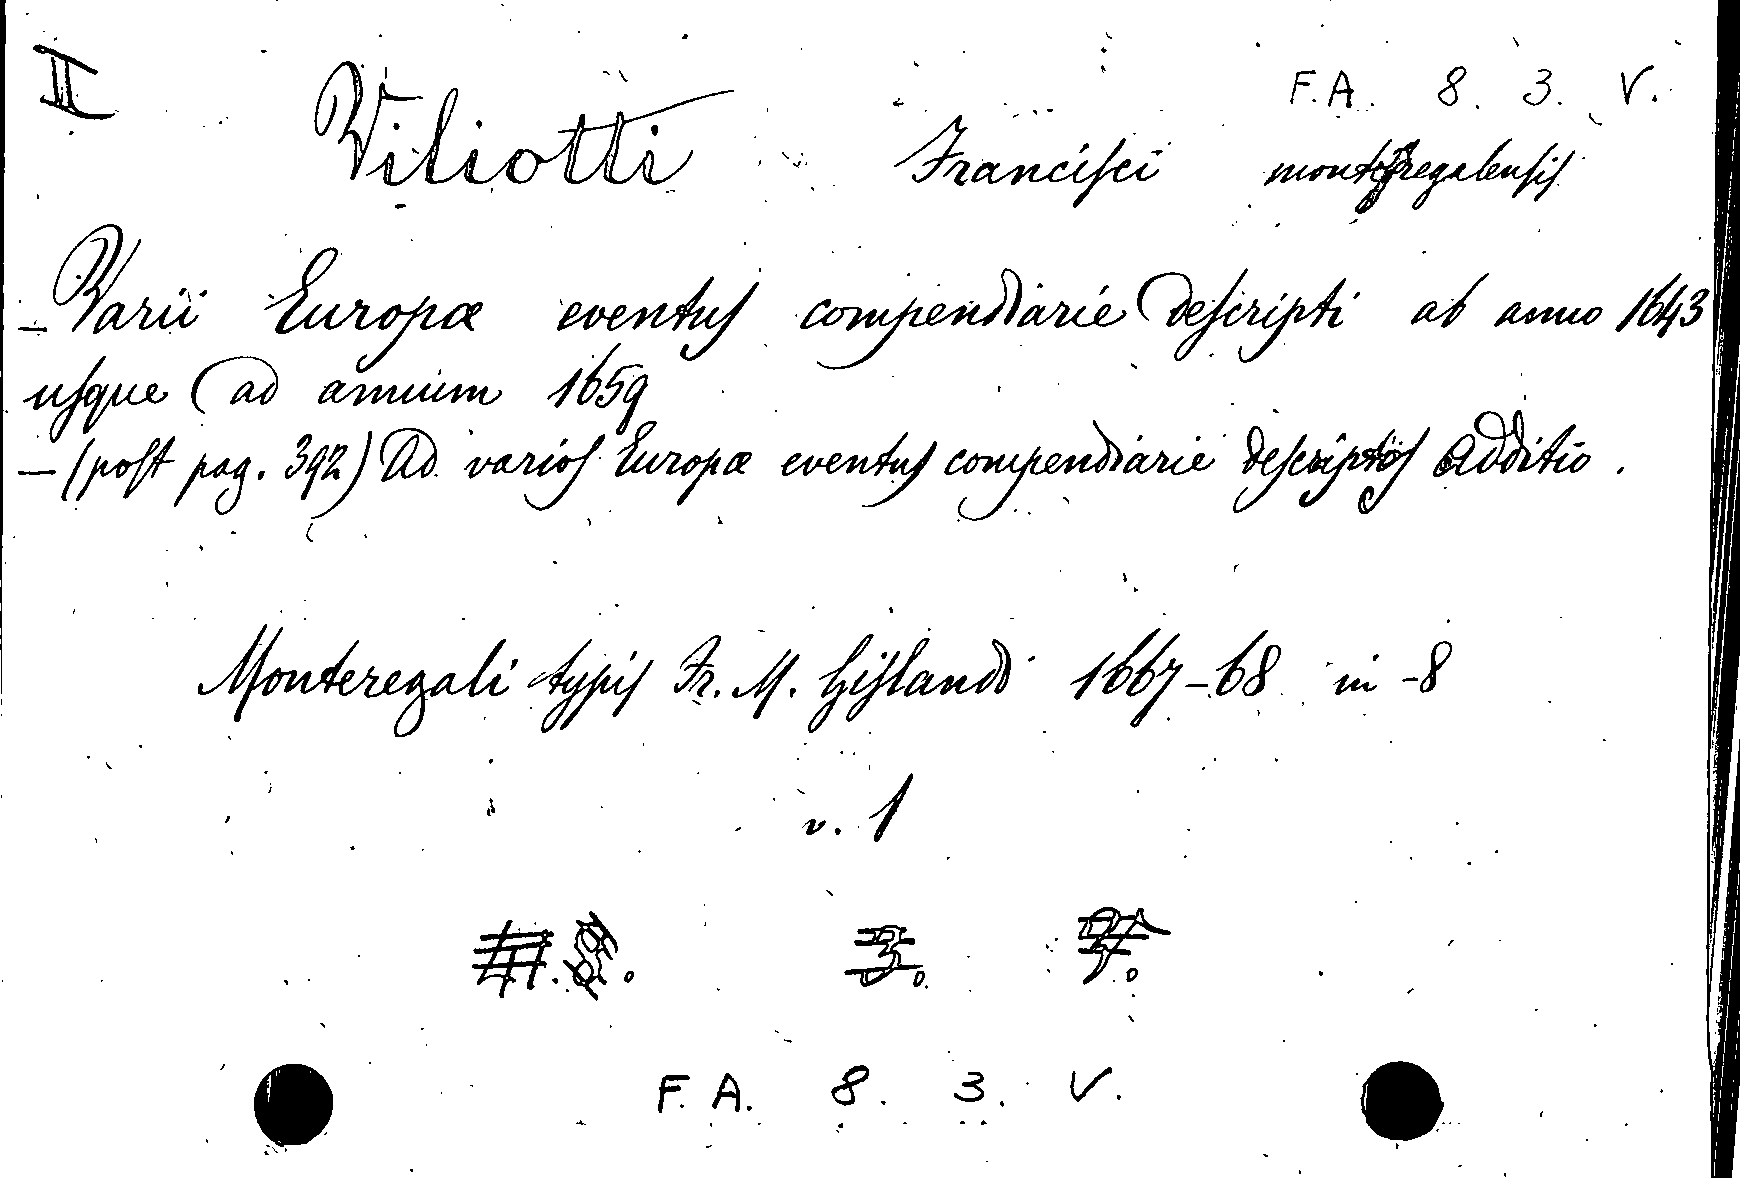 II
F.A. 8. 3. V.
Viliotti Francisci montisregalensis
- Varii Europæ eventus compendiarie descripti ab anno 1643
usque ad annum 1659
- (post pag. 392) Ad varios Europæ eventus compendiarie descriptos additio.
Monteregali typis Fr. M. Gislandi 1667-68 in-8
v. 1
3.
F. A. 8. 3. V.